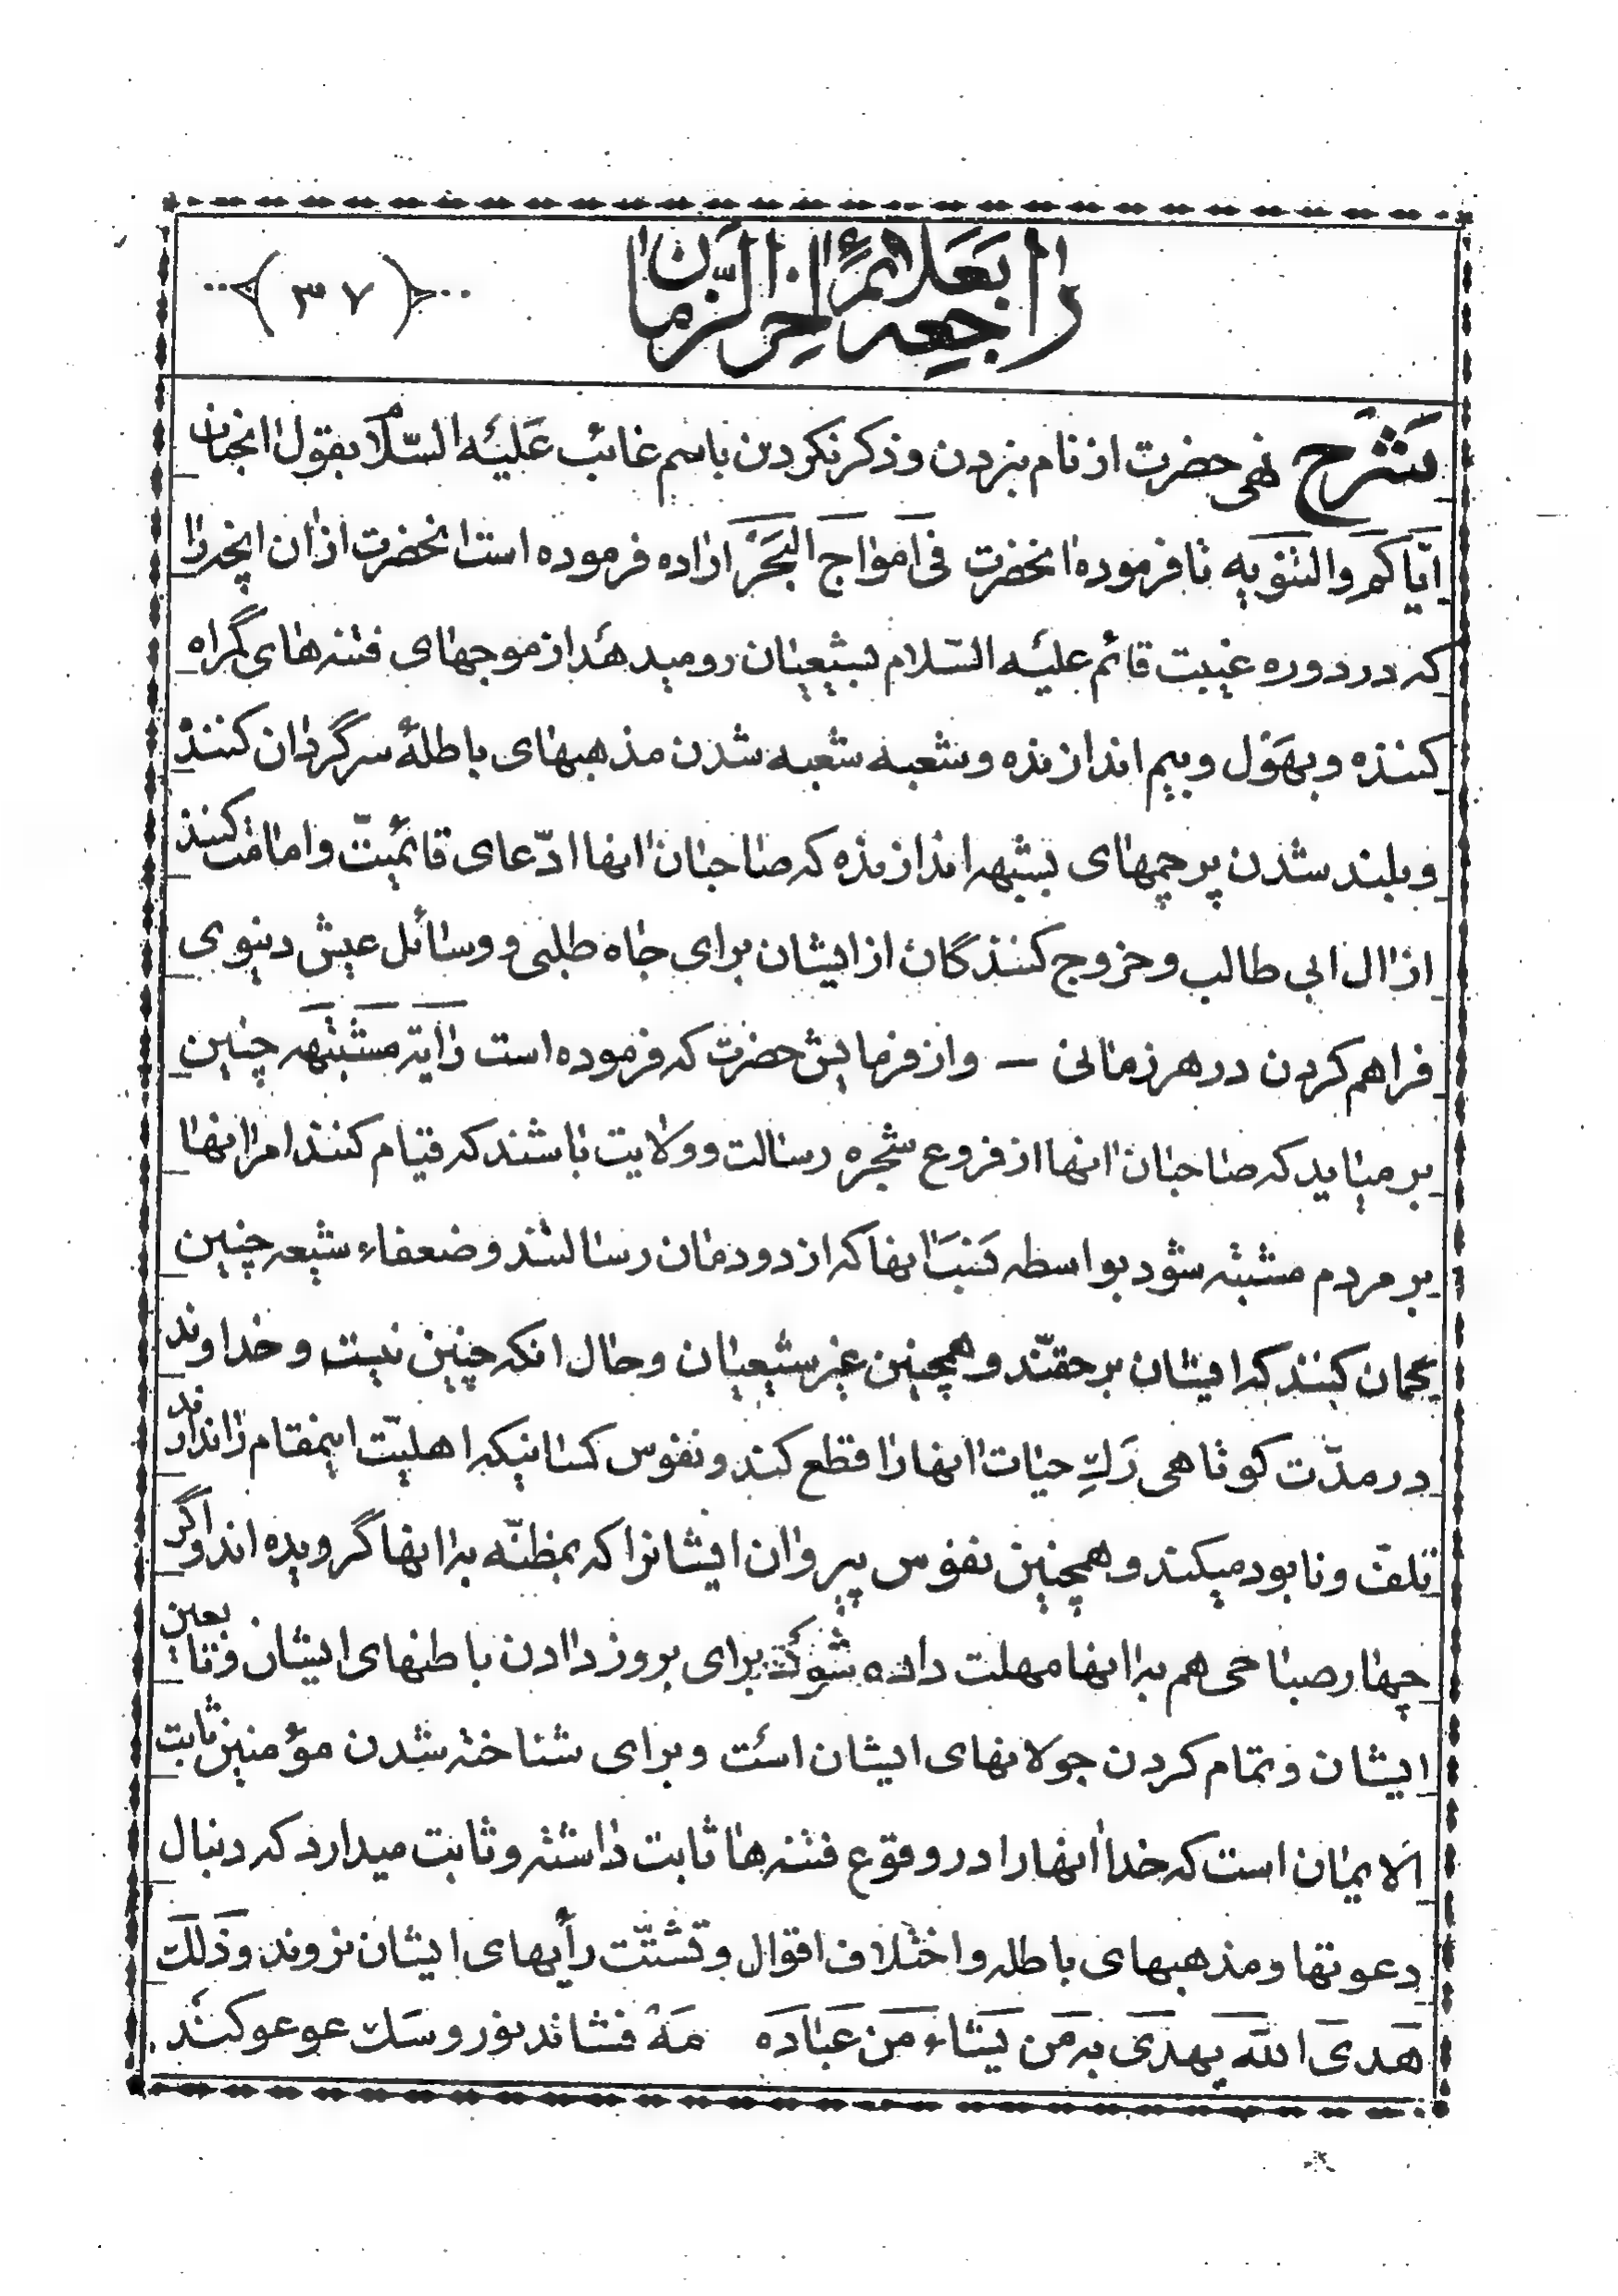 راجعه بعلائم اخر الزمان
(۳۷)
شرح نهی حضرت از نام بردن و ذکر نکردن باسم غائب علیه السلام بقول انجناب
ایاکم والتنویه تا فرموده انحضرت فی امواج البحر اراده فرموده است انحضرت از ان انچه را
که در دوره غیبت قائم علیه السلام بشیعیان رو میدهد از موجهای فتنه های گمراه
کننده و بهول و بیم اندازنده و شعبه شعبه شدن مذهبهای باطله سرگردان کننده
و بلند شدن پرچمهای بشبهه اندازنده که صاحبان انها ادّعای قائمیّت و امامت کنند
از ال ابی طالب و خروج کنندگان از ایشان برای جاه طلبی و وسائل عیش دنیوی
فراهم کردن در هر زمانی — و از فرمایش حضرت که فرموده است رایة مشتبهه چنین
بر میاید که صاحبان انها از فروع شجره رسالت و ولایت باشند که قیام کنند امر انها
بر مردم مشتبه شود بواسطه نسب انها که از دودمان رسالتند و ضعفاء شیعه چنین
گمان کنند که ایشان بر حقّند و همچنین غیر شیعیان و حال انکه چنین نیست و خداوند
در مدّت کوتاهی رگِ حیات انها را قطع کند و نفوس کسانیکه اهلیّت اینمقام را ندارند
تلف و نابود میکند و همچنین نفوس پیروان ایشانرا که بمظنّه به انها گرویده اند و اگر
چهار صباحی هم به انها مهلت داده شود برای بروز دادن باطنهای ایشان و تابعین
ایشان و تمام کردن جولانهای ایشان است و برای شناخته شدن مؤمنین ثابت
الایمان است که خدا انها را در وقوع فتنه ها ثابت داشته و ثابت میدارد که دنبال
دعوتها و مذهبهای باطله و اختلاف اقوال و تشتّت رأیهای ایشان نروند و ذلک
هدی الله یهدی به من یشاء من عباده مه فشاند نور و سک عوعو کند